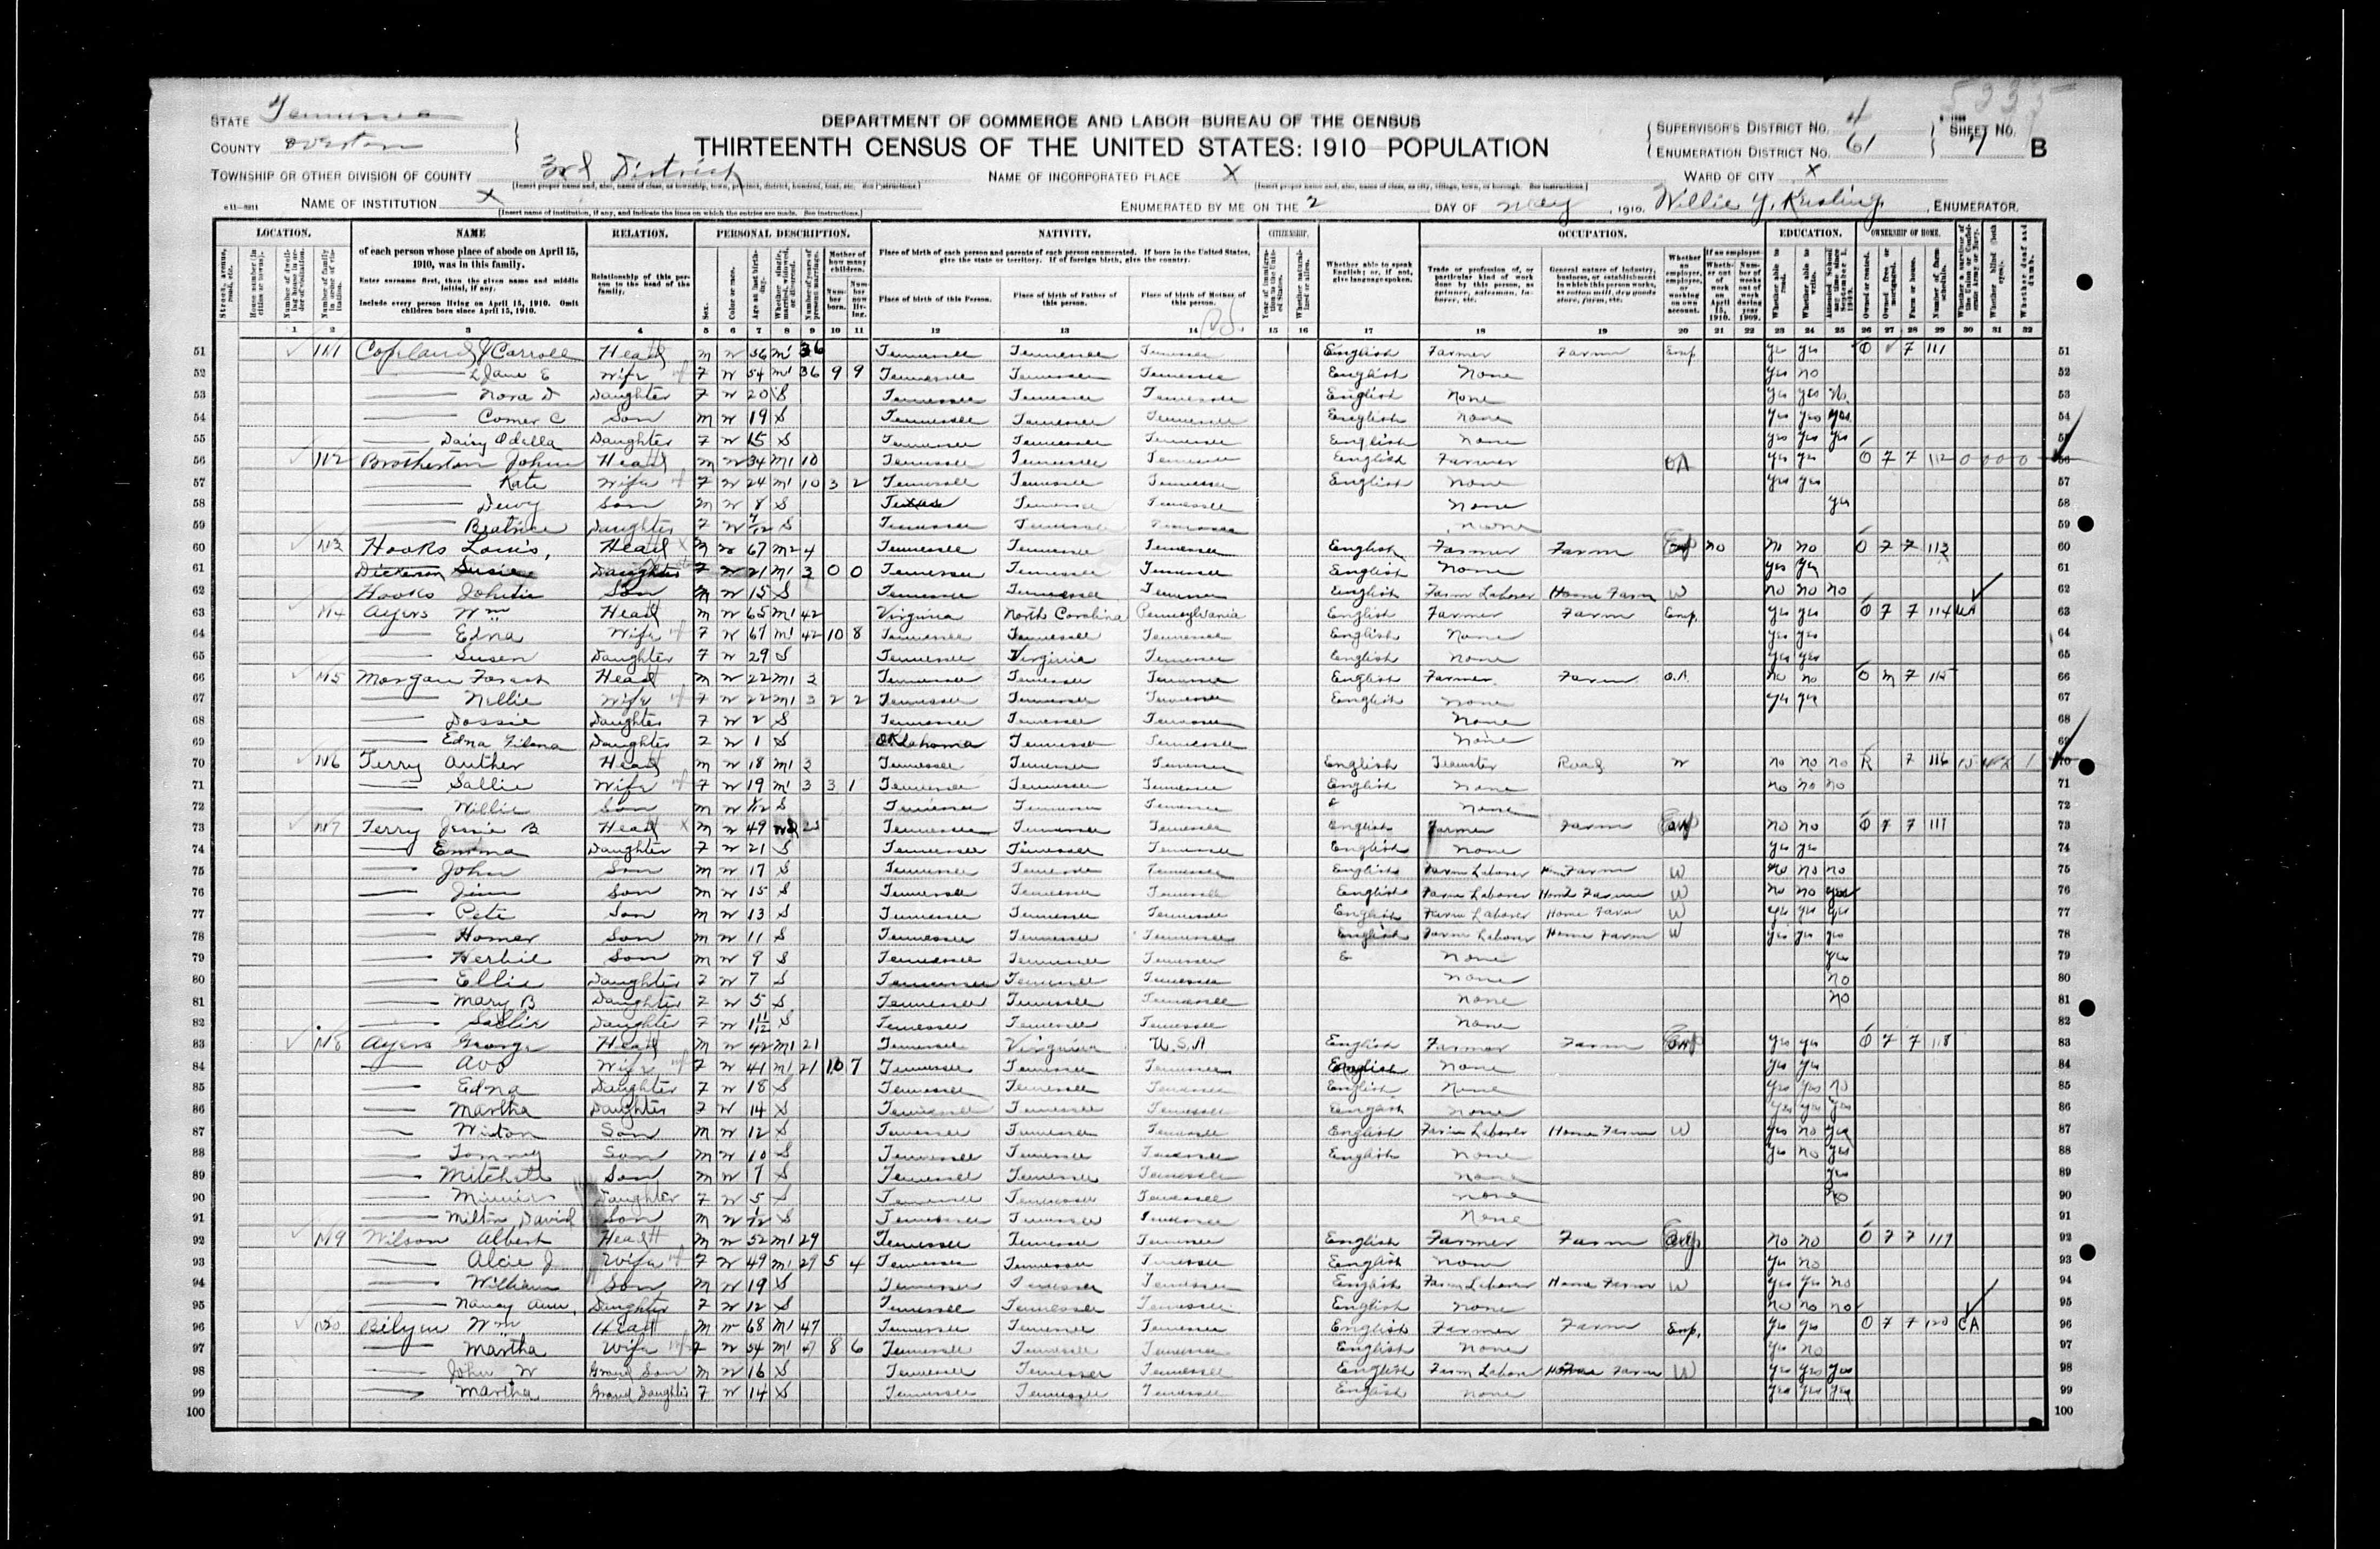 5233
STATE Tennessee
COUNTY Overton
DEPARTMENT OF COMMERCE AND LABOR-BUREAU OF THE CENSUS
THIRTEENTH CENSUS OF THE UNITED STATES: 1910-POPULATION
SUPERVISOR'S DISTRICT No. 4
ENUMERATION DISTRICT No. 61
SHEET No. 7 B
TOWNSHIP OR OTHER DIVISION OF COUNTY 3rd District
NAME OF INCORPORATED PLACE X
WARD OF CITY X
NAME OF INSTITUTION X
ENUMERATED BY ME ON THE 2 DAY OF May, 1910. Willie Y. ENUMERATOR.
LOCATION. NAME RELATION. PERSONAL DESCRIPTION. NATIVITY. CITIZENSHIP. OCCUPATION. EDUCATION. OWNERSHIP OF HOME.
of each person whose place of abode on April 15, 1910, was in this family.
Enter surname first, then the given name and middle initial, if any.
Include every person living on April 15, 1910. Omit children born since April 15, 1910.
Relationship of this person to the head of the family.
Place of birth of each person and parents of each person enumerated. If born in the United States, give the state or territory. If of foreign birth, give the country.
Place of birth of this Person. Place of birth of Father of this person. Place of birth of Mother of this person.
1 2 3 4 5 6 7 8 9 10 11 12 13 14 15 16 17 18 19 20 21 22 23 24 25 26 27 28 29 30 31 32
51 111 Copeland J Carroll Head M W 56 M1 36 Tennessee Tennessee Tennessee English Farmer Farm Emp yes yes O 7 111 51
52 Jane E Wife F W 54 M1 36 9 9 Tennessee Tennessee Tennessee English None yes no 52
53 Nora D Daughter F W 20 S Tennessee Tennessee Tennessee English None yes yes No 53
54 Comer C Son M W 19 S Tennessee Tennessee Tennessee English None yes yes yes 54
55 Daisy Odella Daughter F W 15 S Tennessee Tennessee Tennessee English None yes yes yes 55
56 112 Brotherton John Head M W 34 M1 10 Tennessee Tennessee Tennessee English Farmer OA yes yes O 7 7 112 0 0 0 0 56
57 Kate Wife F W 24 M1 10 3 2 Tennessee Tennessee Tennessee English None yes yes 57
58 Dewy Son M W 8 S Texas Tennessee Tennessee None yes 58
59 Beatrice Daughter F W 7/12 S Tennessee Tennessee Tennessee None 59
60 113 Hooks Louis, Head M W 67 M2 4 Tennessee Tennessee Tennessee English Farmer Farm Emp no No no O 7 7 113 60
61 Dickerson Susie Daughter F W 21 M1 3 0 0 Tennessee Tennessee Tennessee English None yes yes 61
62 Hooks Johnie Son M W 15 S Tennessee Tennessee Tennessee English Farm Laborer Home Farm W no no no 62
63 114 Ayers Wm Head M W 65 M1 42 Virginia North Carolina Pennsylvania English Farmer Farm Emp. yes yes O 7 7 114 UA 63
64 Edna Wife F W 61 M1 42 10 8 Tennessee Tennessee Tennessee English None yes yes 64
65 Susen Daughter F W 29 S Tennessee Virginia Tennessee English None yes yes 65
66 115 Morgan Head M W 22 M1 3 Tennessee Tennessee Tennessee English Farmer Farm O.A. no no O M 7 115 66
67 Nellie Wife F W 22 M1 3 2 2 Tennessee Tennessee Tennessee English None yes yes 67
68 Dossie Daughter F W 2 S Tennessee Tennessee Tennessee None 68
69 Edna Daughter F W 1 S Oklahoma Tennessee Tennessee None 69
70 116 Terry Auther Head M W 18 M1 3 Tennessee Tennessee Tennessee English Teamster Road W no no no R 7 116 1 70
71 Sallie Wife F W 19 M1 3 3 1 Tennessee Tennessee Tennessee English None no no no 71
72 Willie Son M W S Tennessee Tennessee Tennessee None 72
73 117 Terry Jessie B Head M W 49 Wd 25 Tennessee Tennessee Tennessee English Farmer Farm Emp no no O 7 7 117 73
74 Emma Daughter F W 21 S Tennessee Tennessee Tennessee English None yes yes 74
75 John Son M W 17 S Tennessee Tennessee Tennessee English Farm Laborer Farm W no no no 75
76 Jim Son M W 15 S Tennessee Tennessee Tennessee English Farm Laborer Home Farm W no no yes 76
77 Pete Son M W 13 S Tennessee Tennessee Tennessee English Farm Laborer Home Farm W yes yes yes 77
78 Homer Son M W 11 S Tennessee Tennessee Tennessee English Farm Laborer Home Farm W yes yes yes 78
79 Herbie Son M W 9 S Tennessee Tennessee Tennessee E None yes 79
80 Ellie Daughter F W 7 S Tennessee Tennessee Tennessee None no 80
81 Mary B Daughter F W 5 S Tennessee Tennessee Tennessee None no 81
82 Sallie Daughter F W 1 11/12 S Tennessee Tennessee Tennessee None 82
83 118 Ayers George Head M W 42 M1 21 Tennessee Virginia U.S.A English Farmer Farm Emp yes yes O 7 7 118 83
84 Avo Wife F W 41 M1 21 10 7 Tennessee Tennessee Tennessee English None yes yes 84
85 Edna Daughter F W 18 S Tennessee Tennessee Tennessee English None yes yes no 85
86 Martha Daughter F W 14 S Tennessee Tennessee Tennessee English None yes yes yes 86
87 Son M W 12 S Tennessee Tennessee Tennessee English Farm Laborer Home Farm W yes no yes 87
88 Tommy Son M W 10 S Tennessee Tennessee Tennessee English None yes no yes 88
89 Mitchell Son M W 7 S Tennessee Tennessee Tennessee None yes 89
90 Minnie Daughter F W 5 S Tennessee Tennessee Tennessee None no 90
91 Milton David Son M W 1/12 S Tennessee Tennessee Tennessee None 91
92 119 Wilson Albert Head M W 52 M1 29 Tennessee Tennessee Tennessee English Farmer Farm Emp no no O 7 7 119 92
93 Alcie J Wife F W 49 M1 29 5 4 Tennessee Tennessee Tennessee English None yes no 93
94 William Son M W 19 S Tennessee Tennessee Tennessee English Farm Laborer Home Farm W yes yes no 94
95 Nancy Ann, Daughter F W 12 S Tennessee Tennessee Tennessee English None no no no 95
96 120 Bilyeu Wm Head M W 68 M1 47 Tennessee Tennessee Tennessee English Farmer Farm Emp. yes yes O 7 7 120 CA 96
97 Martha Wife F W M1 47 8 6 Tennessee Tennessee Tennessee English None yes no 97
98 John W Grand Son M W 16 S Tennessee Tennessee Tennessee English Farm Labor Home Farm W yes yes yes 98
99 Martha Grand Daughter F W 14 S Tennessee Tennessee Tennessee English None yes yes yes 99
100 100